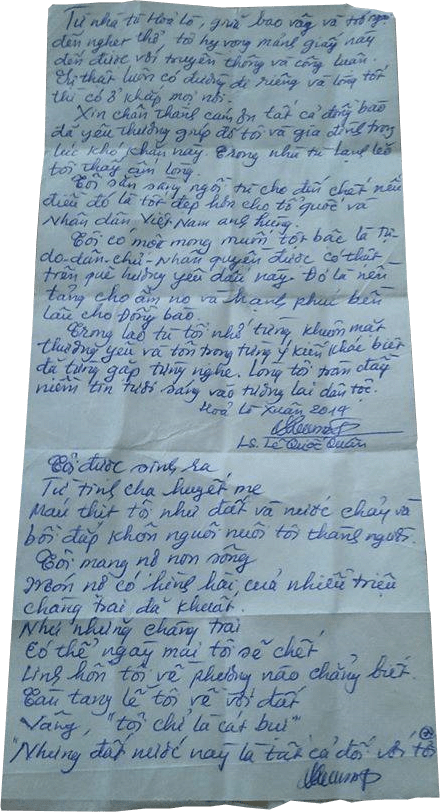 Từ nhà tù Hoả Lò, giữa bao vây và trở ngại
đến nghẹt thở tôi hy vọng mảnh giấy này
đến được với truyền thông và công luận.
Sự thật luôn có đường đi riêng và lòng tốt
thì có ở khắp mọi nơi.
Xin chân thành cảm ơn tất cả đồng bào
đã yêu thương giúp đỡ tôi và gia đình trong
lúc khó khăn này. Trong nhà tù lạnh lẽo
tôi thấy ấm lòng.
Tôi sẵn sàng ngồi tù cho đến chết nếu
điều đó là tốt đẹp hơn cho tổ quốc và
Nhân dân Việt Nam anh hùng.
Tôi có mong muốn tột bậc là Tự-
do-dân-chủ-Nhân quyền được có thật
trên quê hương yêu dấu này. Đó là nền
tảng cho ấm no và hạnh phúc bền
lâu cho Đồng bào.
Trong lao tù tôi nhớ từng khuôn mặt
thương yêu và tôn trọng từng ý kiến khác biệt
đã từng gặp từng nghe. Lòng tôi tràn đầy
niềm tin tươi sáng vào tương lai dân tộc.
Hoả Lò Xuân 2014
LS. Lê Quốc Quân
Tôi được sinh ra
Từ tinh cha huyết mẹ
Máu thịt tôi như đất và nước chảy và
bồi đắp khôn nguôi nuôi tôi thành người.
Tôi mang nợ non sông
Món nợ có hình hài của nhiều triệu
chàng trai đã khuất.
Như những chàng trai
Có thể ngày mai tôi sẽ chết
Linh hồn tôi về phương nào chẳng biết
tang lễ tôi về với đất
Vâng, "tôi chỉ là cát bụi"
"Nhưng đất nước này là tất cả đối với tôi